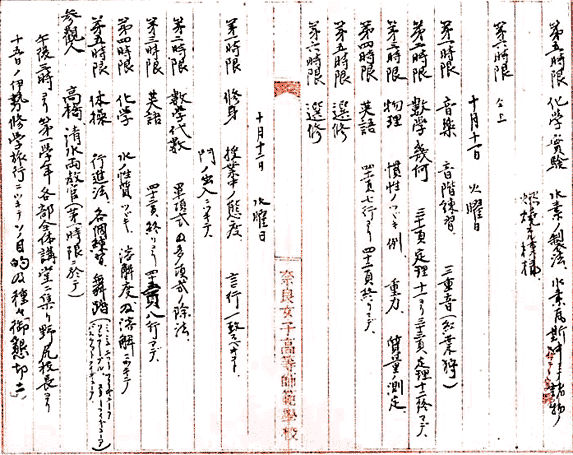 第五時限 化学実験 水素ノ製法、水素瓦斯中ニテ諸物
燃焼ノ模様
第六時限 仝上
十月十一日 火曜日
第一時限 音楽 音階練習、三重音(紅葉狩)
第二時限 数学幾何 三三頁定理十一ヨリ三三頁定理十二終マデ
第三時限 物理 慣性ノツヾキ例 重力、質量測定
第四時限 英語 四十頁七行ヨリ四十二頁終リマデ
第五時限 選修
第六時限 選修
奈良女子高等師範學校
十月十二日 水曜日
第一時限 修身 授業中ノ態度、言行一致スベキコト
門ノ出入ニツキテ
第二時限 数学代数 単項式及多項式ノ除法、
第三時限 英語 四三頁終リヨリ四五頁八行マデ
第四時限 化学 水ノ性質ツヾキ、溶解度及溶解ニツキテ
第五時限 体操 行進法、各個練習、舞踏
参観人 高橋、清水両教官(第一時限ニ於テ)
午後三時ヨリ第一学年各部全体講堂ニ集リ野尻校長ヨリ
十五日ノ伊勢修学旅行ニツキテソノ目的及種々御懇切ニ